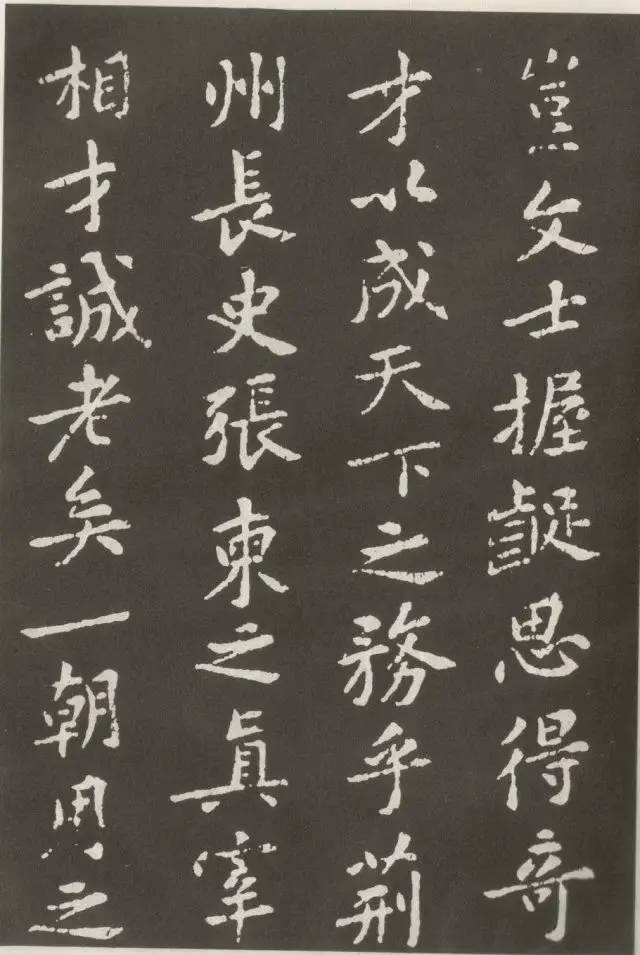 豈文士握齪思得奇
才以成天下之務乎荆
州長史張柬之眞宰
相才誠老矣一朝用之